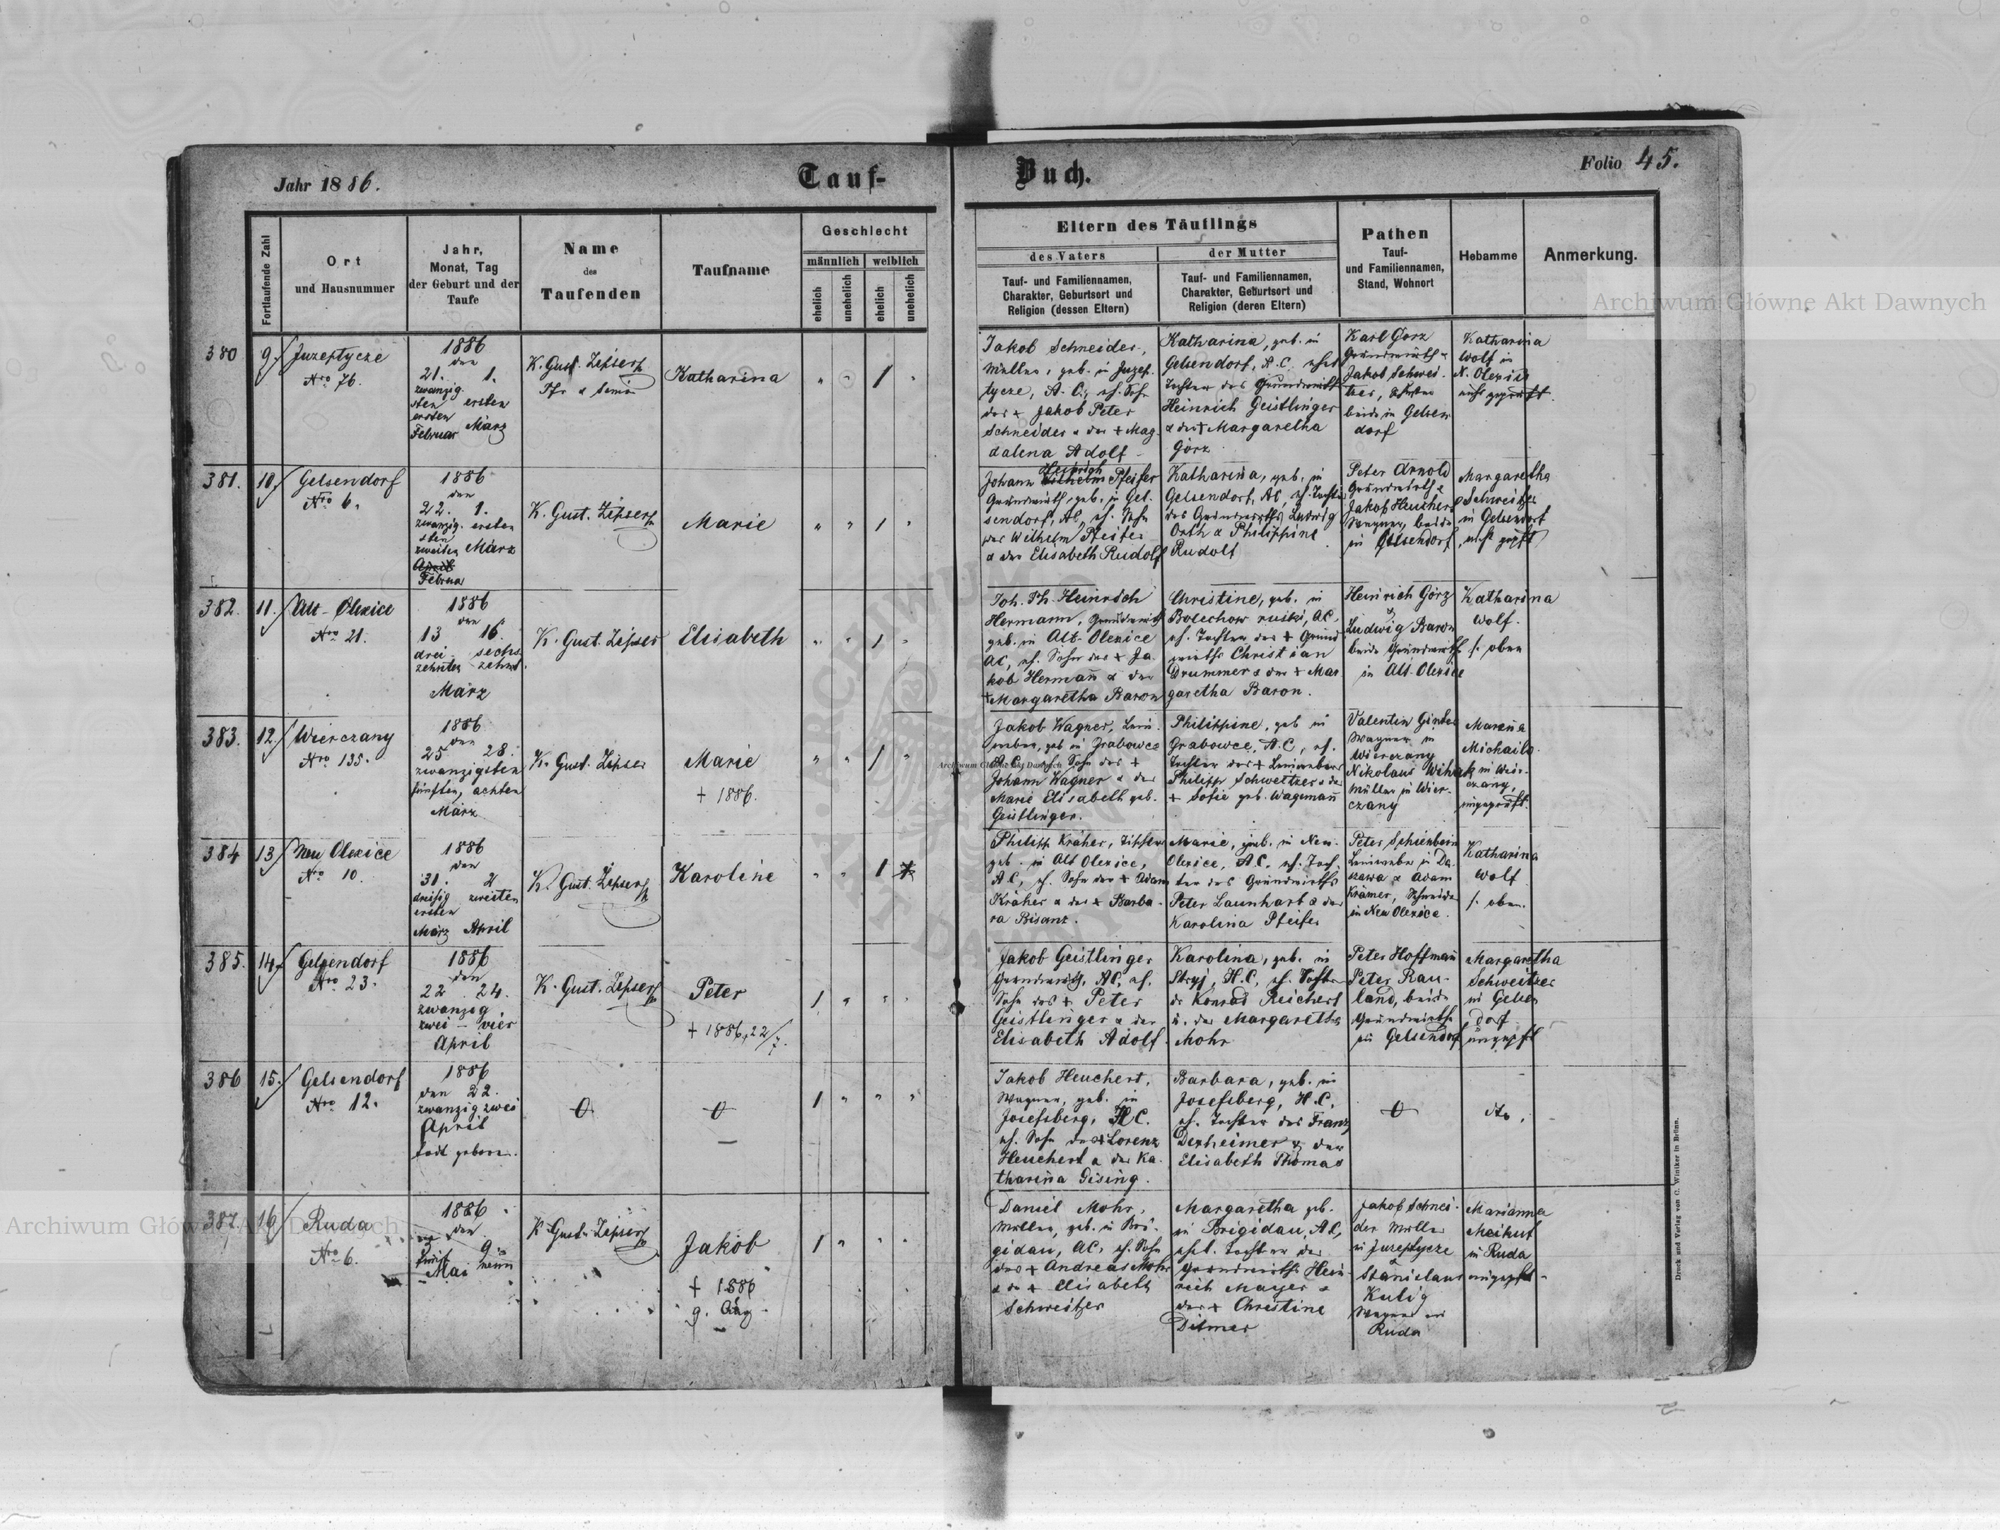 Jahr 1886.
Tauf-
Buch.
Folio 45.
Fortlaufende Zahl
Ort
und Hausnummer
Jahr,
Monat, Tag
der Geburt und der
Taufe
Name
des
Taufenden
Taufname
Geschlecht
männlich
weiblich
ehelich
unehelich
ehelich
unehelich
Eltern des Täuflings
des Vaters
Tauf- und Familiennamen,
Charakter, Geburtsort und
Religion (dessen Eltern)
der Mutter
Tauf- und Familiennamen,
Charakter, Geburtsort und
Religion (deren Eltern)
Pathen
Tauf-
und Familiennamen,
Stand, Wohnort
Hebamme
Anmerkung.
380
9.
Juzeptycze
Nro 76.
1886
den
21. 1.
zwanzig
sten ersten
ersten
Februar März
K. Gust. Zipser
Pfr u Senior
Katharina
" " 1 "
Jakob Schneider,
Müller, geb. in Juzep-
tycze, A. C., eh. Sohn
des + Jakob Peter
Schneider u der + Mag-
dalena Adolf
Katharina, geb. in
Gelsendorf, A. C. ehel
Tochter des Grundwirths
Heinrich Geistlinger
u der + Margaretha
Görz
Karl Görz
Grundwirth u
Jakob Schnei-
der,
beide in Gelsen
dorf
Katharina
Wolf in
N. Olexice
nicht geprüft.
381.
10.
Gelsendorf
Nro 6.
1886
den
22. 1.
zwanzig- ersten
sten
zweiten März
April
Februar
K. Gust. Zipser
Marie
" " 1 "
Heinrich
Johann Wilhelm Pfeifer
Grundwirth, geb. in Gel-
sendorf, AC, eh. Sohn
des Wilhelm Pfeifer
u der Elisabeth Rudolf
Katharina, geb. in
Gelsendorf, AC, eh. Tochter
des Grundwirths Ludwig
Orth u Philippine
Rudolf
Peter Arnold
Grundwirth u
Jakob Heuchert
Wagner, beide
in Gelsendorf
Margaretha
Schweitzer
in Gelsendorf
nicht geprft
382.
11.
Alt-Olexice
Nro 21.
1886
den
13 16.
drei sechs
zehnten zehnt.
März
K. Gust. Zipser
Elisabeth
" " 1 "
Joh. Ph. Heinrich
Hermann, Grundwirth
geb. in Alt-Olexice
AC, eh. Sohn des + Ja-
kob Hermann u der
+ Margaretha Baron
Christine, geb. in
Bolechow ruski, AC.
eh. Tochter des + Grund
wirths Christian
Drummer u der + Mar
garetha Baron.
Heinrich Görz
u
Ludwig Baron
beide Grundwirth
in Alt-Olexice
Katharina
Wolf.
s. oben
383.
12.
Wierczany
Nro 135.
1886
den
25 28.
zwanzigsten
fünften, achten
März
K. Gust. Zipser
Marie
+ 1886.
" " 1 "
Jakob Wagner, Lein-
weber, geb in Grabowce
A. C., eh. Sohn des +
Johann Wagner u der
Marie Elisabeth geb.
Geistlinger.
Philippine, geb in
Grabowce, A. C., eh.
Tochter des + Leinwebers
Philipp Schweitzer u der
+ Sofie geb. Wagemann
Valentin Ginter
Wagner in
Wierczany
Nikolaus Wihak
Müller in Wier-
czany
Marena
Michailo
in Wier-
czany,
ungeprüft.
384
13
Neu Olexice
Nro 10.
1886
den
31. 2
dreißig zweiten
ersten
März April
K. Gust. Zipser
Karoline
" " 1
Philipp Kräher,
geb. in Alt Olexice,
A C, eh. Sohn der + Adam
Kräher u der + Barba-
ra Bisanz.
Marie, geb. in Neu-
Olexice, AC. eh. Toch-
ter des Grundwirths
Peter Launhart u der
Karolina Pfeifer
Peter Schienbein
Leinweber in Da-
szawa u Adam
Krämer, Schneider
in Neu Olexice.
Katharina
Wolf
s. oben.
385.
14.
Gelsendorf
Nro 23.
1886
den
22 24.
zwanzig
zwei – vier
April
K. Gust. Zipser
Peter
+ 1886, 22/7.
1 " " "
Jakob Geistlinger
Grundwirth, AC, eh.
Sohn des + Peter
Geistlinger u der
Elisabeth Adolf.
Karolina, geb. in
Stryj, H. C., eh. Tochter
de Konrad Reichert
u. der Margaretha
Mohr
Peter Hoffmann
Peter Rau-
land, beide
Grundwirthe
in Gelsendorf
Margaretha
Schweitzer
in Gelsen
dorf
ungeprft
386
15.
Gelsendorf
Nro 12.
1886
den 22.
zwanzig zwei
April
todt geboren.
1 " " "
Jakob Heuchert,
Wagner, geb. in
Josefsberg, H. C.
eh. Sohn des + Lorenz
Heuchert u der Ka-
tharina Gising.
Barbara, geb. in
Josefsberg, H. C.
eh. Tochter des Franz
Dexheimer u der
Elisabeth Thomas
dto.
387.
16
Ruda
Nro 6.
1886
den
9.
neun
Mai
K. Gust. Zipser
Jakob
+ 1886
9. Aug
1 " " "
Daniel Mohr,
Müller, geb. in Bri-
gidau, AC, eh. Sohn
des + Andreas Mohr
u der + Elisabeth
Schweitzer
Margaretha geb.
in Brigidau, AC,
ehl. Tochter des
Grundwirths Hein-
rich Mayer u
der + Christine
Ditmer
Jakob Schnei-
der Müller
in Juzeptycze
u
Stanislaus
Kulig
Wagner in
Ruda
Marianna
Meikut
in Ruda
ungeprft
Druck und Verlag von C. Winiker in Brünn.
Archiwum Główne Akt Dawnych
Archiwum Główne Akt Dawnych
Archiwum Główne Akt Dawnych